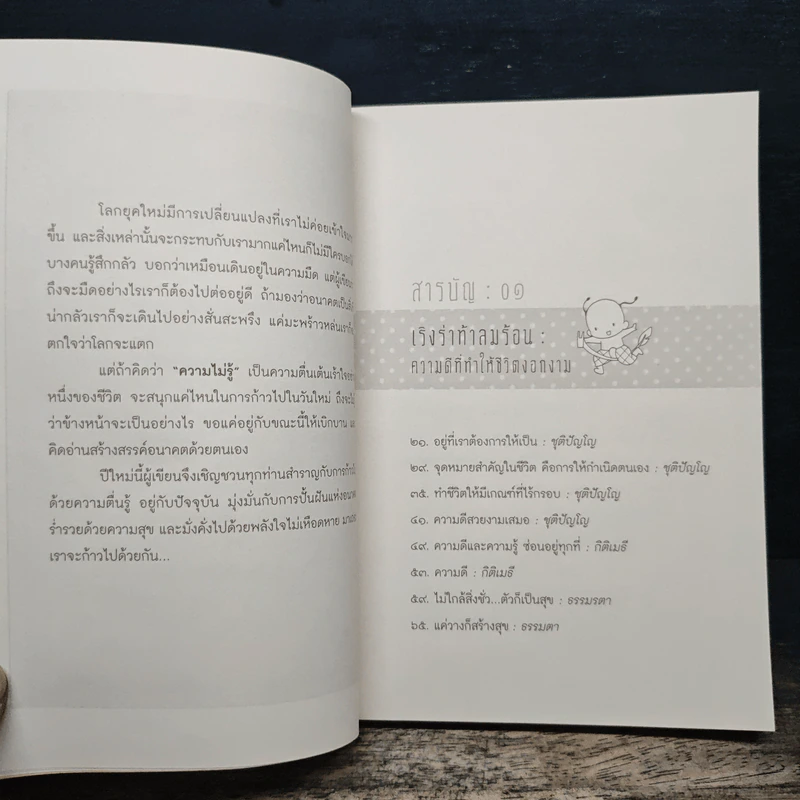 โลกยุคใหม่มีการเปลี่ยนแปลงที่เราไม่ค่อยเข้าใจ
ขึ้น และสิ่งเหล่านั้นจะกระทบกับเรามากแค่ไหนก็ไม่มีใคร
บางคนรู้สึกกลัว บอกว่าเหมือนเดินอยู่ในความมืด แต่ผู้เขียน
ถึงจะมืดอย่างไรเราก็ต้องไปต่ออยู่ดี ถ้ามองว่าอนาคตเป็น
น่ากลัวเราก็จะเดินไปอย่างสั่นสะพรึง แค่มะพร้าวหล่นเราก็
ตกใจว่าโลกจะแตก
แต่ถ้าคิดว่า "ความไม่รู้" เป็นความตื่นเต้นเร้าใจ
หนึ่งของชีวิต จะสนุกแค่ไหนในการก้าวไปในวันใหม่ ถึงจะ
ว่าข้างหน้าจะเป็นอย่างไร ขอแค่อยู่กับขณะนี้ให้เบิกบาน
คิดอ่านสร้างสรรค์อนาคตด้วยตนเอง
ปีใหม่นี้ผู้เขียนจึงเชิญชวนทุกท่านสำราญกับการ
ด้วยความตื่นรู้ อยู่กับปัจจุบัน มุ่งมั่นกับการปั้นฝันแห่ง
ร่ำรวยด้วยความสุข และมั่งคั่งไปด้วยพลังใจไม่เหือดหาย
เราจะก้าวไปด้วยกัน...
สารบัญ : ๐๑
เริงร่าท้าลมร้อน :
ความดีที่ทำให้ชีวิตงอกงาม
๒๑. อยู่ที่เราต้องการให้เป็น : ชุติปัญโญ
๒๙. จุดหมายสำคัญในชีวิต คือการให้กำเนิดตนเอง : ชุติปัญโญ
๓๕. ทำชีวิตให้มีเกณฑ์ที่ไร้กรอบ : ชุติปัญโญ
๔๑. ความดีสวยงามเสมอ : ชุติปัญโญ
๔๙. ความดีและความรู้ ซ่อนอยู่ทุกที่ : กิติเมธี
๕๓. ความดี : กิติเมธี
๕๙. ไม่ใกล้สิ่งชั่ว...ตัวก็เป็นสุข : ธรรมรตา
๖๕. แค่วางก็สร้างสุข : ธรรมรตา